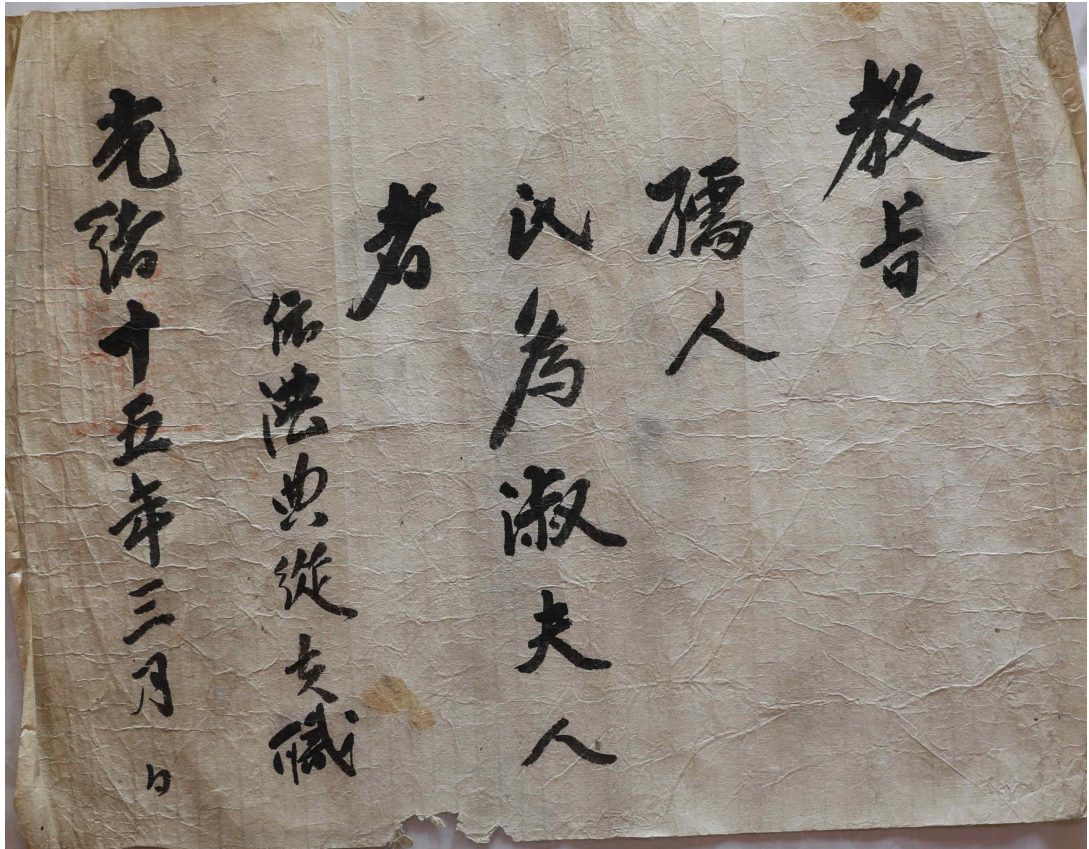 教旨
孺人
氏為淑夫人
者
依法典從夫職
光緒十五年三月 日